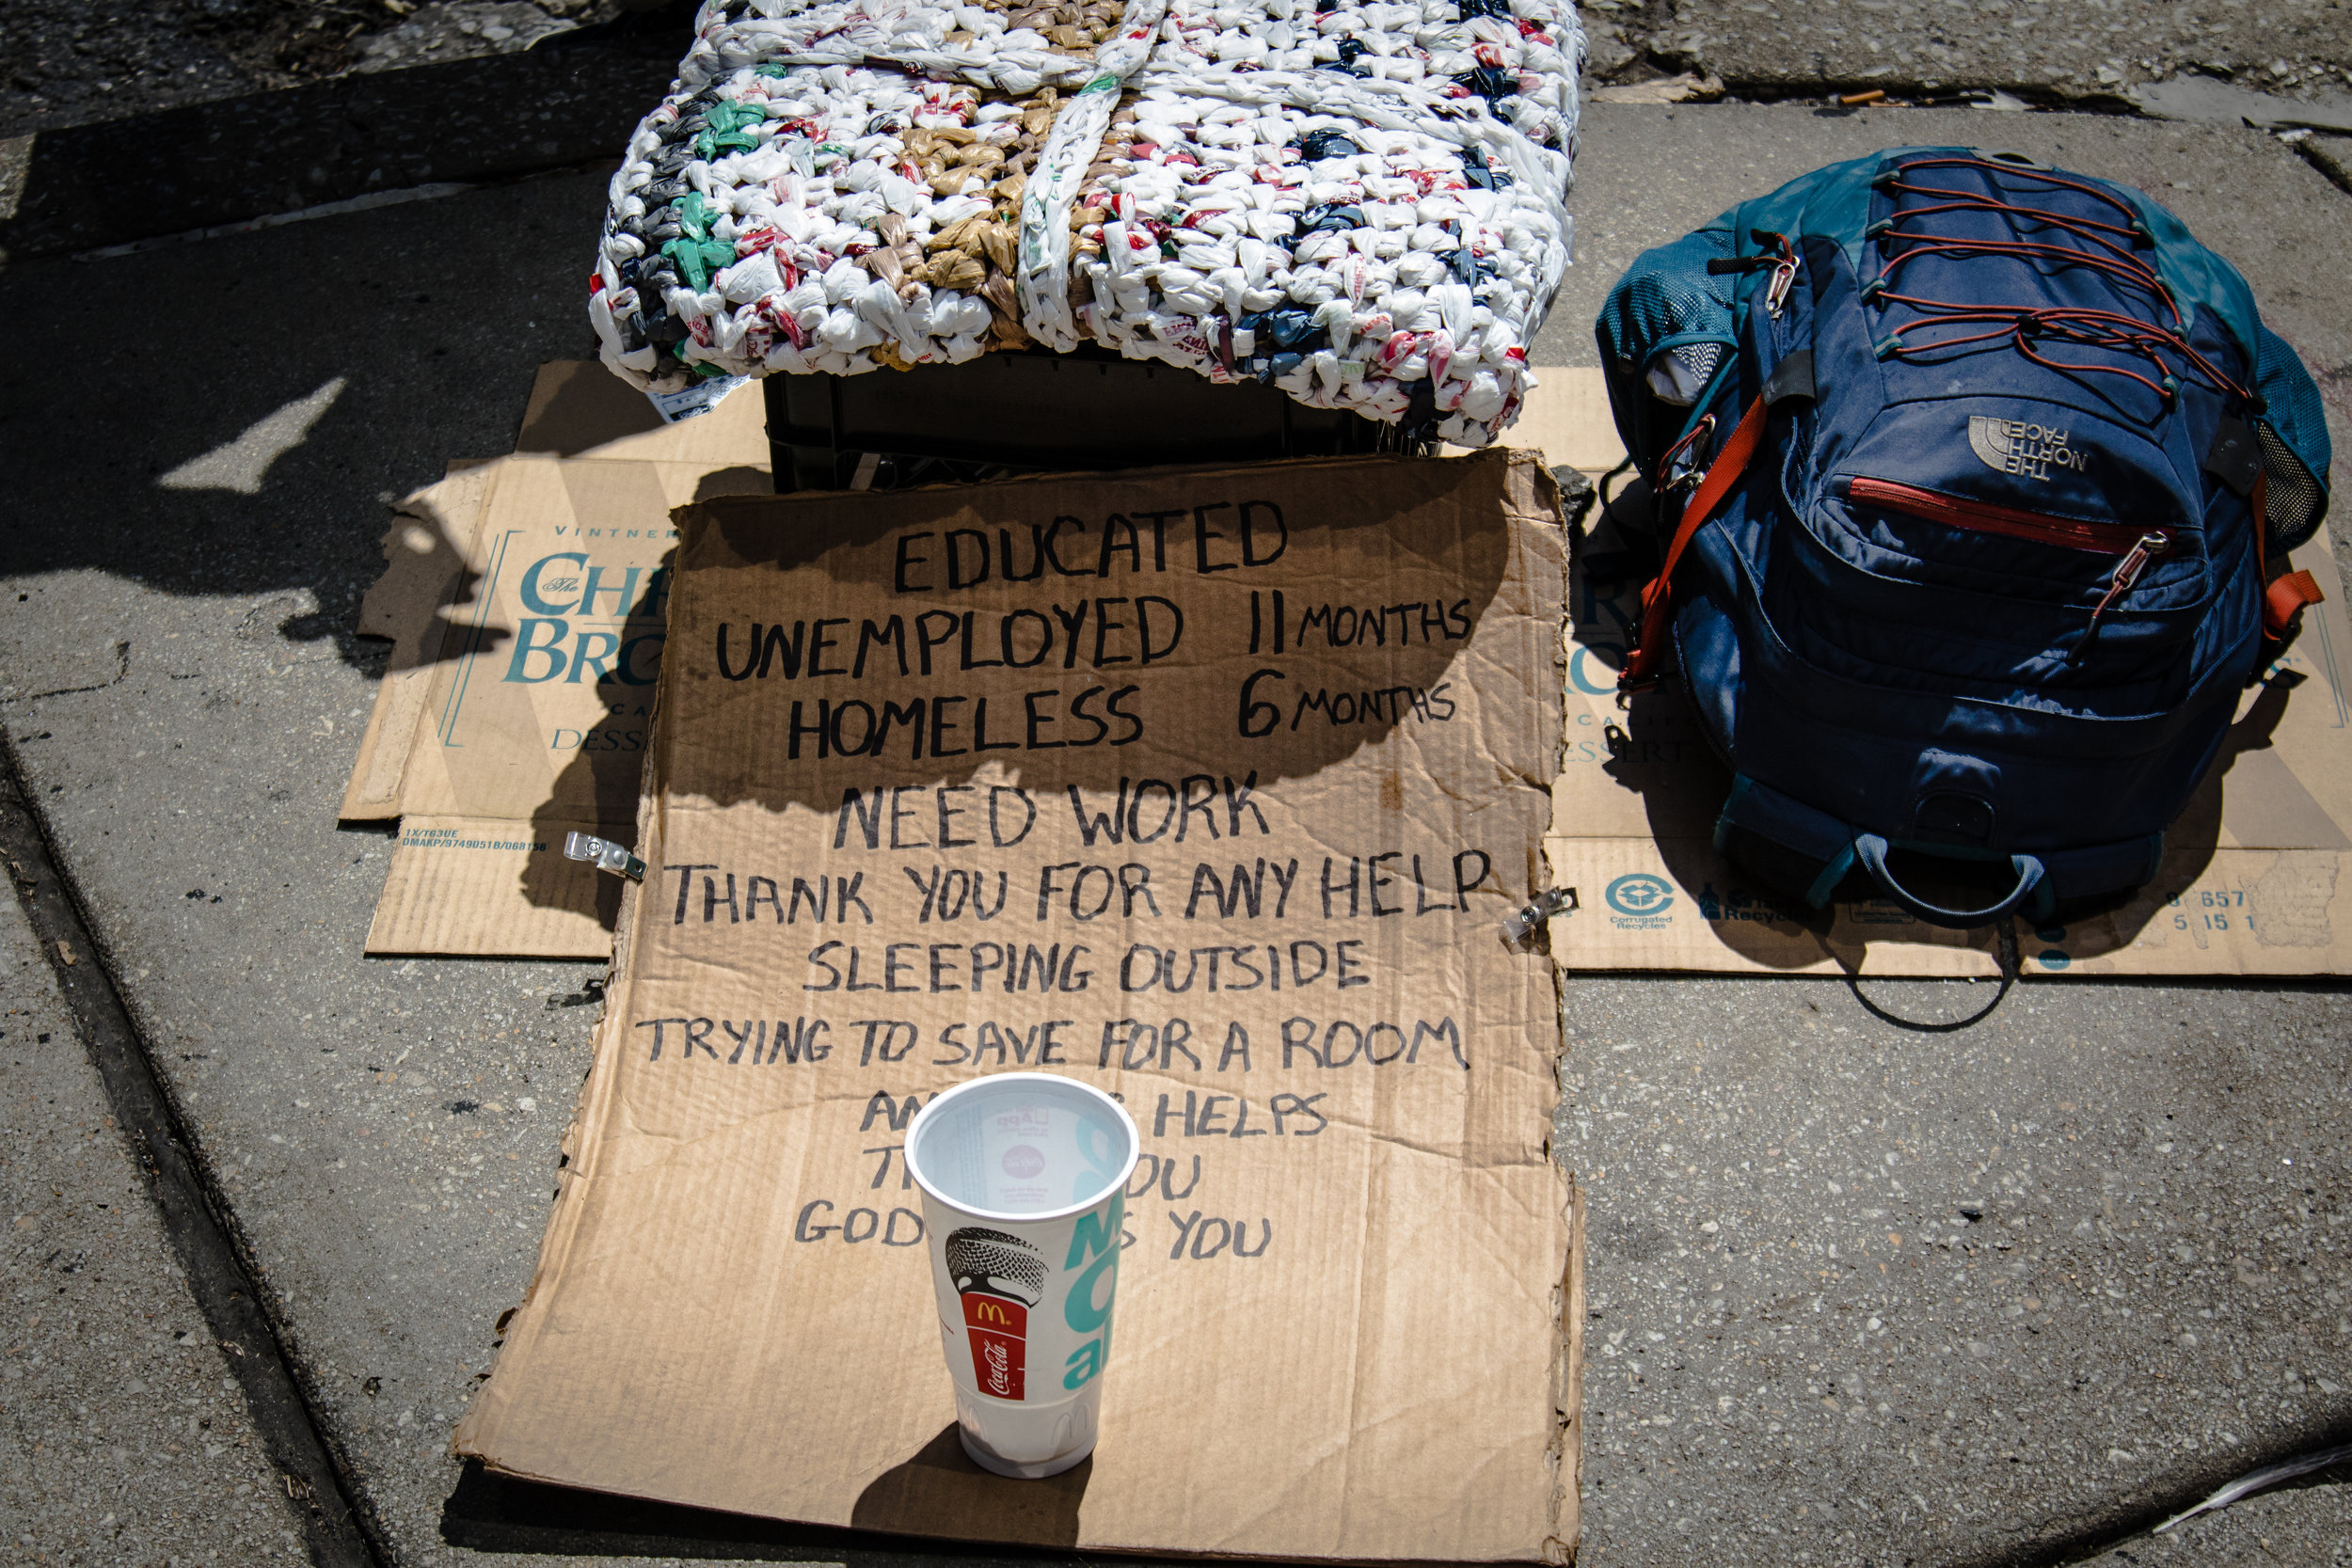 EDUCATED
UNEMPLOYED 11 MONTHS
HOMELESS 6 MONTHS
NEED WORK
THANK YOU FOR ANY HELP
SLEEPING OUTSIDE
TRYING TO SAVE FOR A ROOM
HELPS
GOD YOU
THE
NORTH
FACE
The
DESSERT
1X/T63UE
OMAKP/9749051B/068156
Corrugated
Recycles
Recycles
657
5 15 1
M
Coca-Cola